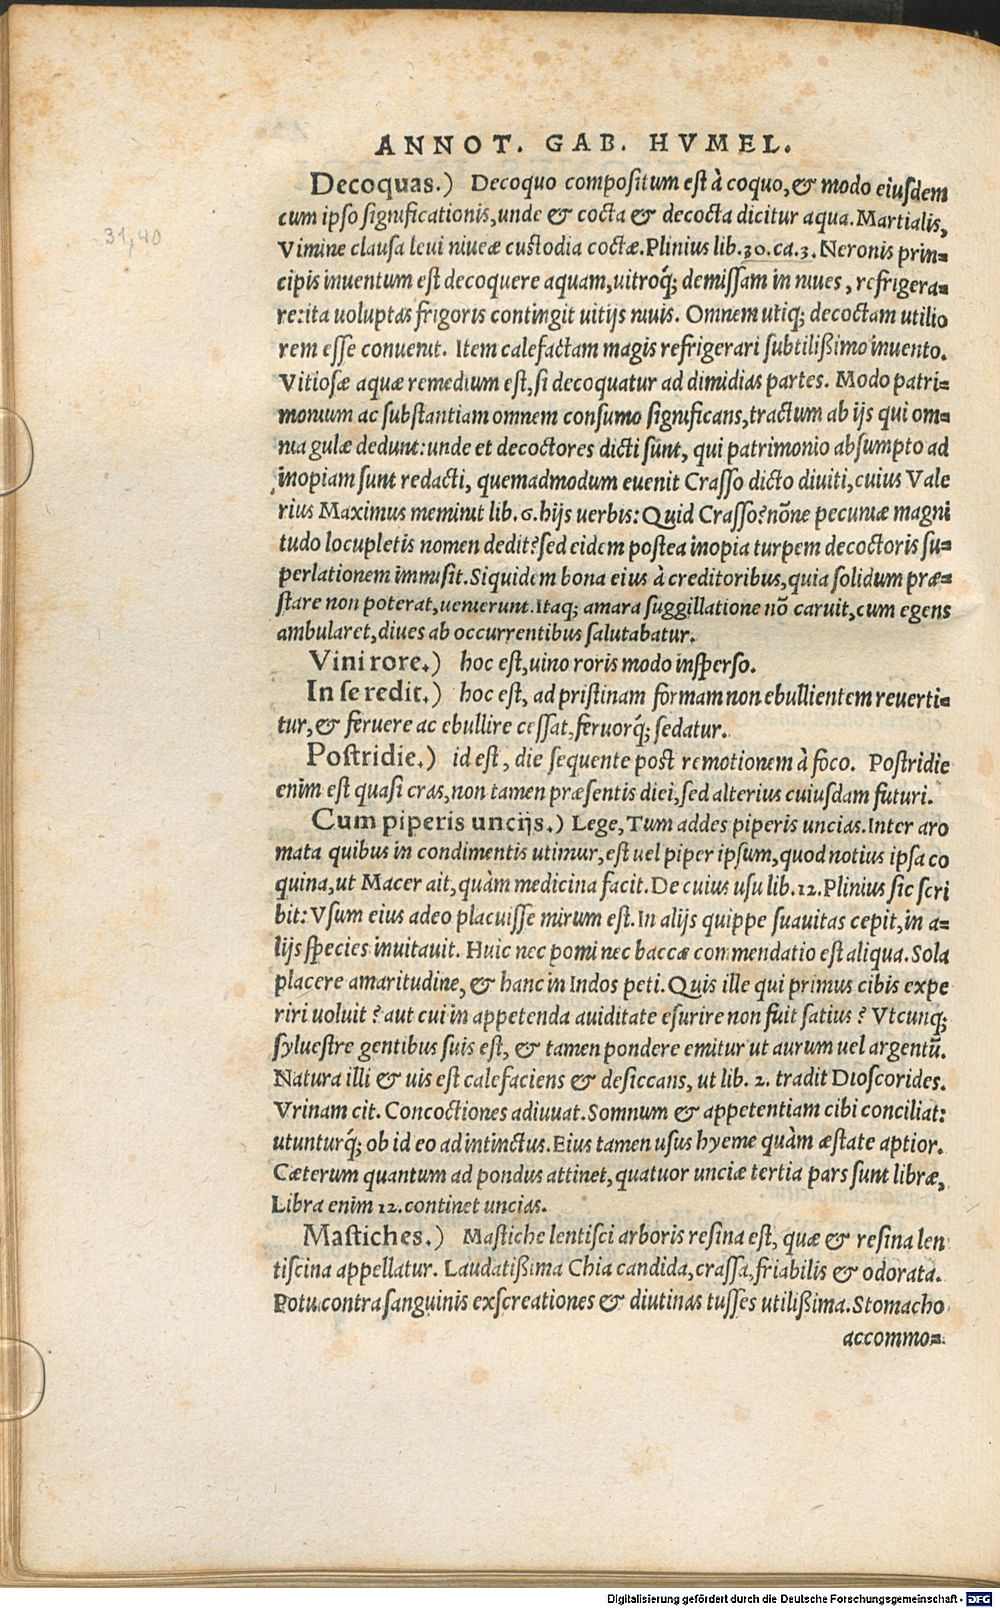 ANNOT. GAB. HVMEL.
Decoquas.) Decoquo compositum est à coquo, & modo eiusdem
cum ipso significationis, unde & cocta & decocta dicitur aqua. Martialis,
Vimine clausa leui niueæ custodia coctæ. Plinius lib. 30. ca. 3. Neronis prin=
31,40
cipis inuentum est decoquere aquam, uitroq́; demissam in niues, refrigera=
re: ita uoluptas frigoris contingit uitijs niuis. Omnem utiq; decoctam utilio
rem esse conuenit. Item calefactam magis refrigerari subtilißimo inuento.
Vitiosæ aquæ remedium est, si decoquatur ad dimidias partes. Modo patri=
monium ac substantiam omnem consumo significans, tractum ab ijs qui om=
nia gulæ dedunt: unde et decoctores dicti sunt, qui patrimonio absumpto ad
inopiam sunt redacti, quemadmodum euenit Crasso dicto diuiti, cuius Vale
rius Maximus meminit lib. 6. hijs uerbis: Quid Crasso? nōne pecuniæ magni
tudo locupletis nomen dedit? sed eidem postea inopia turpem decoctoris su=
perlationem immisit. Siquidem bona eius à creditoribus, quia solidum præ=
stare non poterat, uenierunt. Itaq; amara suggillatione nō caruit, cum egens
ambularet, diues ab occurrentibus salutabatur.
Vini rore.) hoc est, uino roris modo insperso.
In se redit.) hoc est, ad pristinam formam non ebullientem reuerti=
tur, & feruere ac ebullire cessat, feruorq́; sedatur.
Postridie.) id est, die sequente post remotionem à foco. Postridie
enim est quasi cras, non tamen præsentis diei, sed alterius cuiusdam futuri.
Cum piperis uncijs.) Lege, Tum addes piperis uncias. Inter aro
mata quibus in condimentis utimur, est uel piper ipsum, quod notius ipsa co
quina, ut Macer ait, quàm medicina facit. De cuius usu lib. 12. Plinius sic scri
bit: Vsum eius adeo placuisse mirum est. In alijs quippe suauitas cepit, in a=
lijs species inuitauit. Huic nec pomi nec baccæ commendatio est aliqua. Sola
placere amaritudine, & hanc in Indos peti. Quis ille qui primus cibis expe
riri uoluit? aut cui in appetenda auiditate esurire non fuit satius? Vtcunq;
syluestre gentibus suis est, & tamen pondere emitur ut aurum uel argentū.
Natura illi & uis est calefaciens & desiccans, ut lib. 2. tradit Dioscorides.
Vrinam cit. Concoctiones adiuuat. Somnum & appetentiam cibi conciliat:
utunturq́; ob id eo ad intinctus. Eius tamen usus hyeme quàm æstate aptior.
Cæterum quantum ad pondus attinet, quatuor unciæ tertia pars sunt libræ,
Libra enim 12. continet uncias.
Mastiches.) Mastiche lentisci arboris resina est, quæ & resina len
tiscina appellatur. Laudatißima Chia candida, crassa, friabilis & odorata.
Potu contra sanguinis exscreationes & diutinas tusses utilißima. Stomacho
accommo=
Digitalisierung gefördert durch die Deutsche Forschungsgemeinschaft - DFG